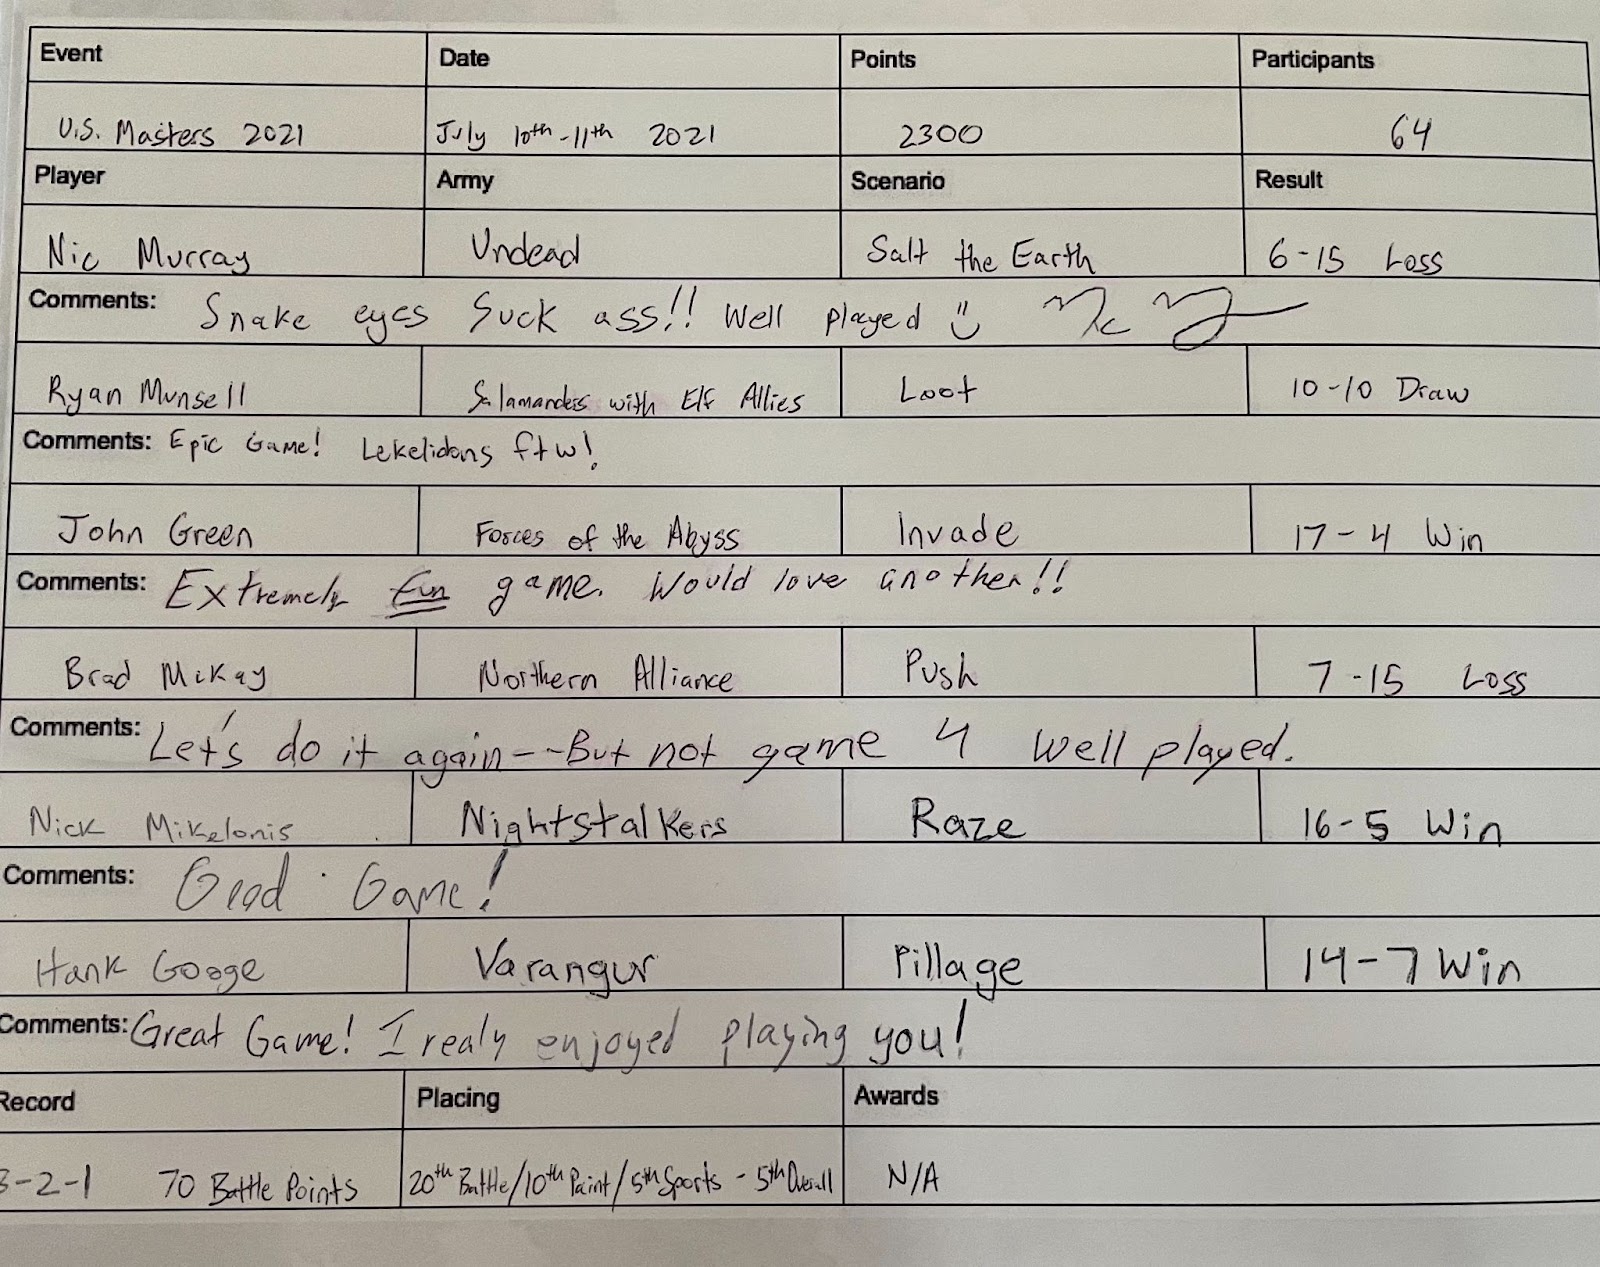 Event Date Points Participants
U.S. Masters 2021 July 10th-11th 2021 2300 64
Player Army Scenario Result
Nic Murray Undead Salt the Earth 6-15 Loss
Comments: Snake eyes suck ass!! Well played
Ryan Munsell Salamanders with Elf Allies Loot 10-10 Draw
Comments: Epic Game! Lekelidons ftw!
John Green Forces of the Abyss Invade 17-4 Win
Comments: Extremely Fun game. Would love another!!
Brad McKay Northern Alliance Push 7-15 Loss
Comments: Let's do it again--But not game 4 Well played.
Nick Mikelonis Nightstalkers Raze 16-5 Win
Comments: Good Game!
Hank Googe Varangur Pillage 14-7 Win
Comments: Great Game! I realy enjoyed playing you!
Record Placing Awards
3-2-1 70 Battle Points 20th Battle/10th Paint/5th Sports - 5th Overall N/A